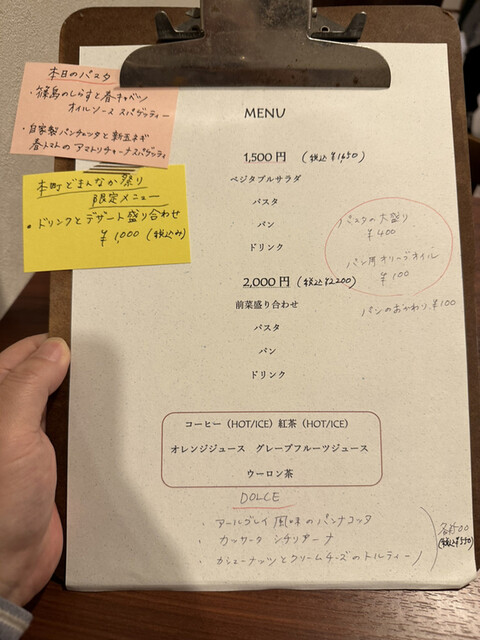 本日のパスタ
・篠島のしらすと春キャベツ
オイルソース スパゲッティー
・自家製パンチェッタと新玉ネギ
春トマトのアマトリチャーナスパゲッティ
本町どまんなか祭り
限定メニュー
・ドリンクとデザート盛り合わせ
¥1,000 (税込み)
MENU
1,500円 (税込¥1,650)
ベジタブルサラダ
パスタ
パン
ドリンク
パスタの大盛り
¥400
パン用オリーブオイル
¥100
パンのおかわり ¥100
2,000円 (税込¥2,200)
前菜盛り合わせ
パスタ
パン
ドリンク
コーヒー（HOT/ICE）紅茶（HOT/ICE）
オレンジジュース グレープフルーツジュース
ウーロン茶
DOLCE
・アールグレイ風味のパンナコッタ
・カッサータ シチリアーナ
・カシューナッツとクリームチーズのトルティーノ
各¥500
(税込¥550)